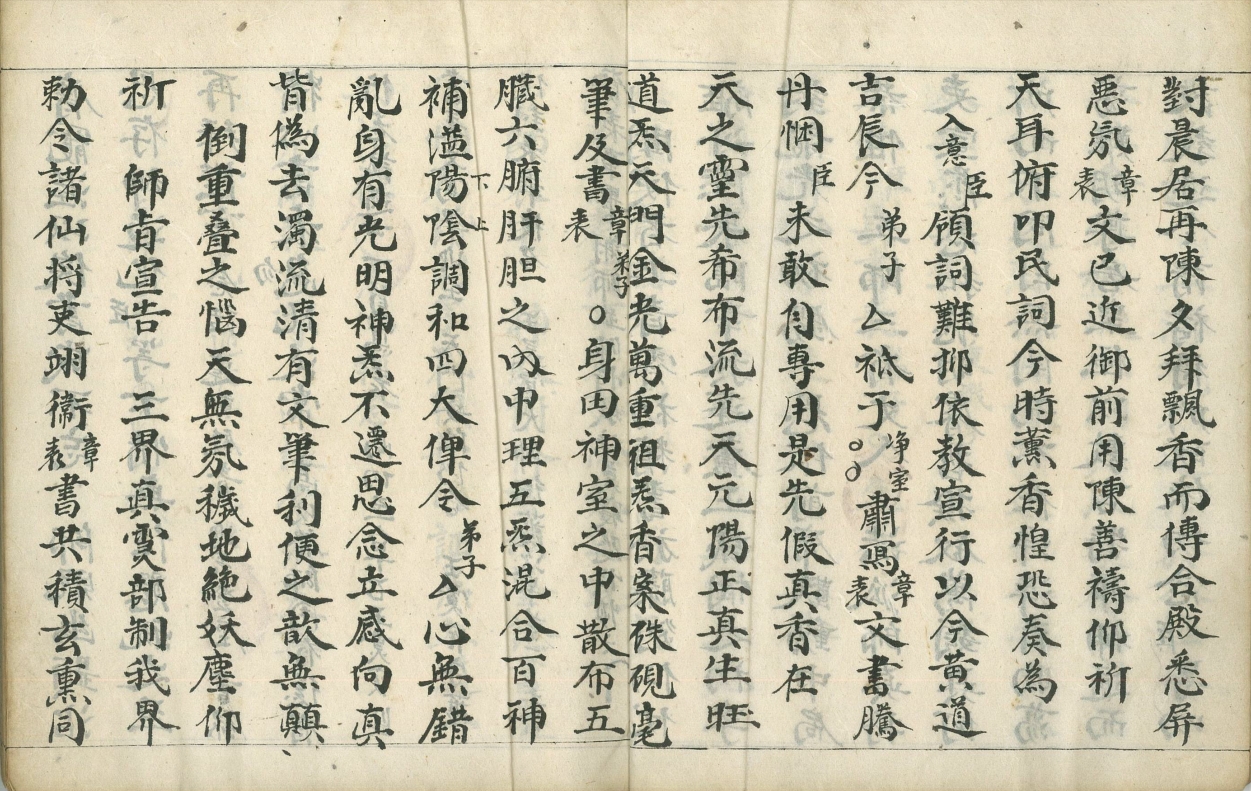 對晨居再陳久拜飄香而愽合殿悉屏
悪氛章表文已近御前用陳善禱仰祈
天耳俯叩民詞今時薰香惶恐奏為
入意臣領詞難抑依教宣行以今黄道
吉辰今弟子厶祗于○○净室肅寫章表文書騰
丹悃臣未敢自專用是先假真香在
天之靈先布布流先天元陽正真生旺
道炁天門金光萬重祖炁香案硃硯毫
筆及書章表弟子○身田神室之中散布五
臓六腑肝胆之内中理五炁混合百神
補溢陽下陰上調和四大俾令弟子厶心無錯
亂身有光明神炁不還思念立感向真
背偽去濁流清有文筆利便之歆無顛
倒重叠之惱天無氛穢地絶妖塵仰
祈師旨宣告三界真靈部制我界
勅令諸仙将吏翊衛章表書共積玄熏同